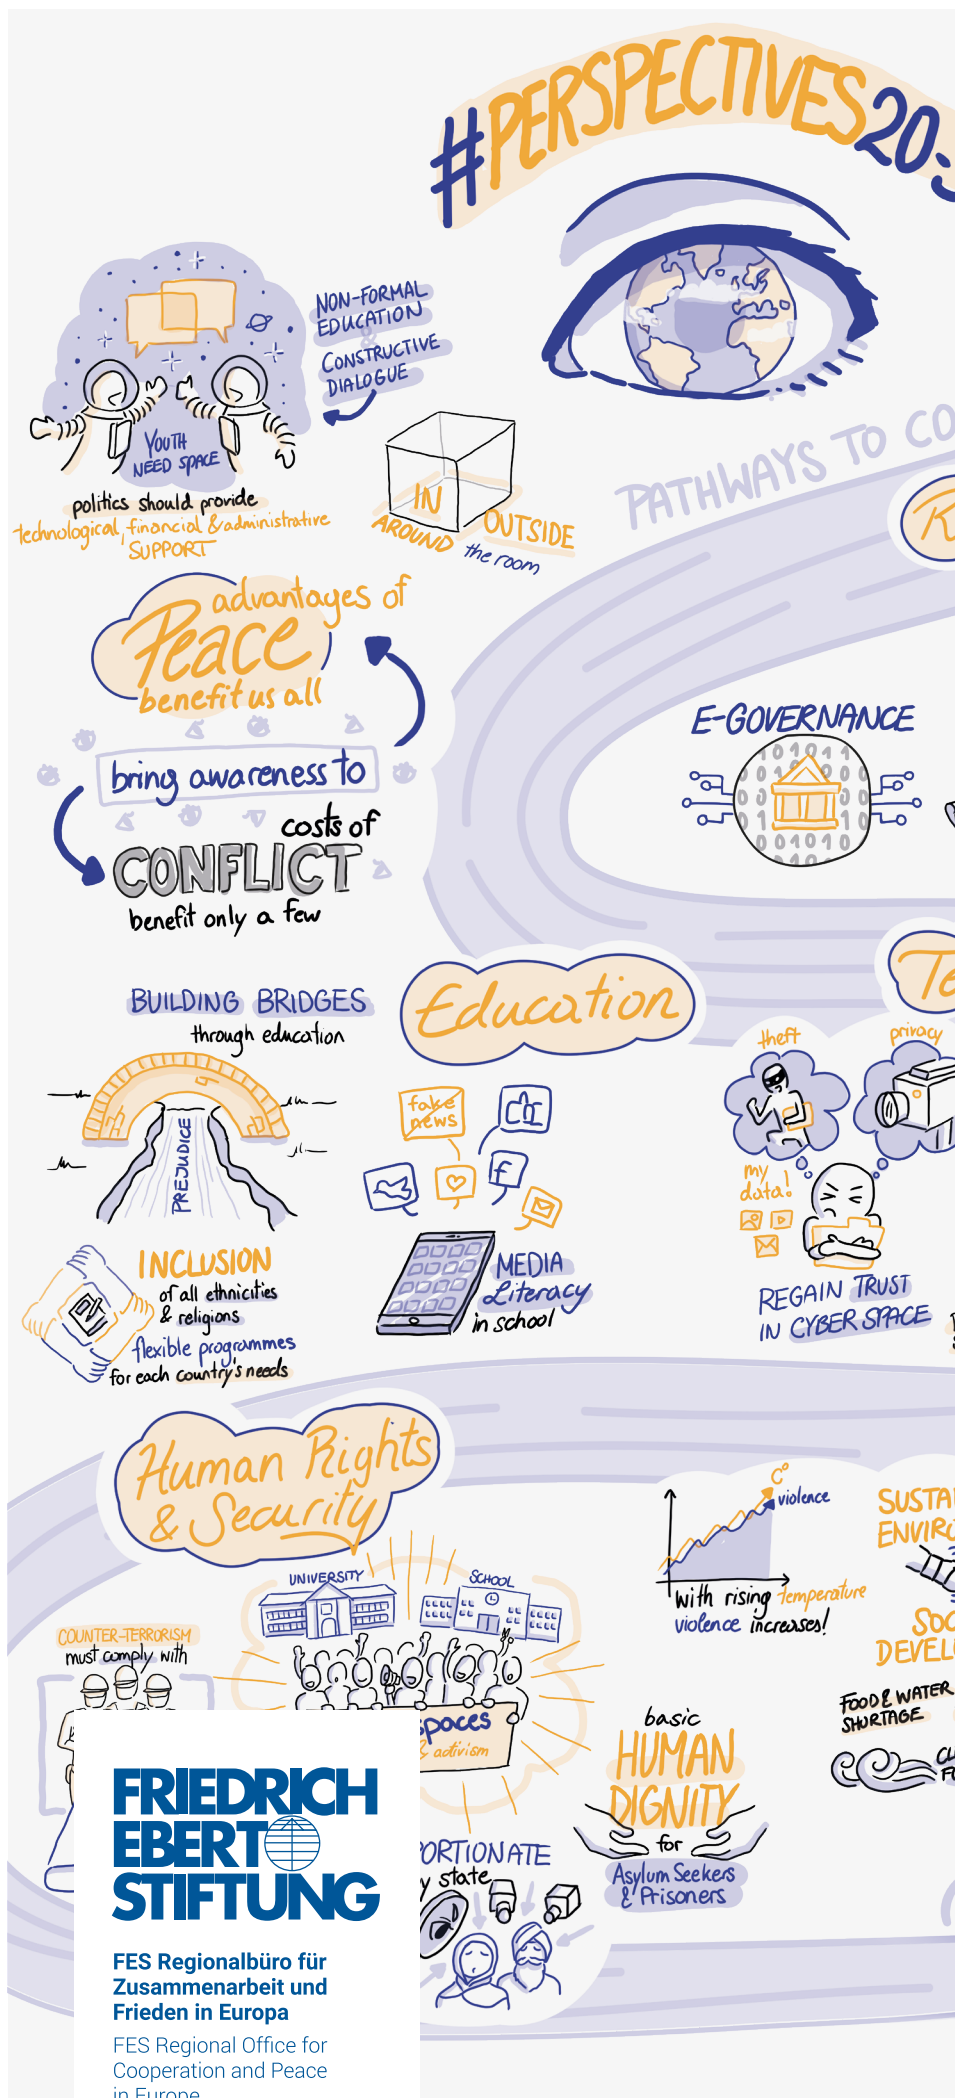 #PERSPECTIVES20:
NON-FORMAL
EDUCATION
&
CONSTRUCTIVE
DIALOGUE
YOUTH
NEED SPACE
politics should provide
technological, financial & administrative
SUPPORT
IN
AROUND
OUTSIDE
the room
PATHWAYS TO CO
advantages of
Peace
benefit us all
bring awareness to
costs of
CONFLICT
benefit only a few
E-GOVERNANCE
BUILDING BRIDGES
through education
PREJUDICE
Education
fake
news
f
MEDIA
Literacy
in school
Te
theft
privacy
my
data!
REGAIN TRUST
IN CYBER SPACE
INCLUSION
of all ethnicities
& religions
flexible programmes
for each country's needs
Human Rights
& Security
UNIVERSITY
SCHOOL
COUNTER-TERRORISM
must comply with
spaces
& activism
C°
violence
With rising temperature
violence increases!
SUSTA
ENVIRO
SOC
DEVEL
FOOD & WATER
SHORTAGE
CL
FO
basic
HUMAN
DIGNITY
for
Asylum Seekers
& Prisoners
PORTIONATE
y state
FRIEDRICH
EBERT
STIFTUNG
FES Regionalbüro für
Zusammenarbeit und
Frieden in Europa
FES Regional Office for
Cooperation and Peace
in Europe